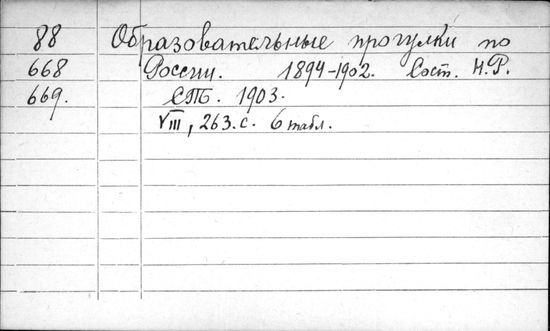 88 Образовательные прогулки по
668 России. 1894-1902. Сост. Н.Р.
669. СПб. 1903.
VIII, 263.с. 6 табл.